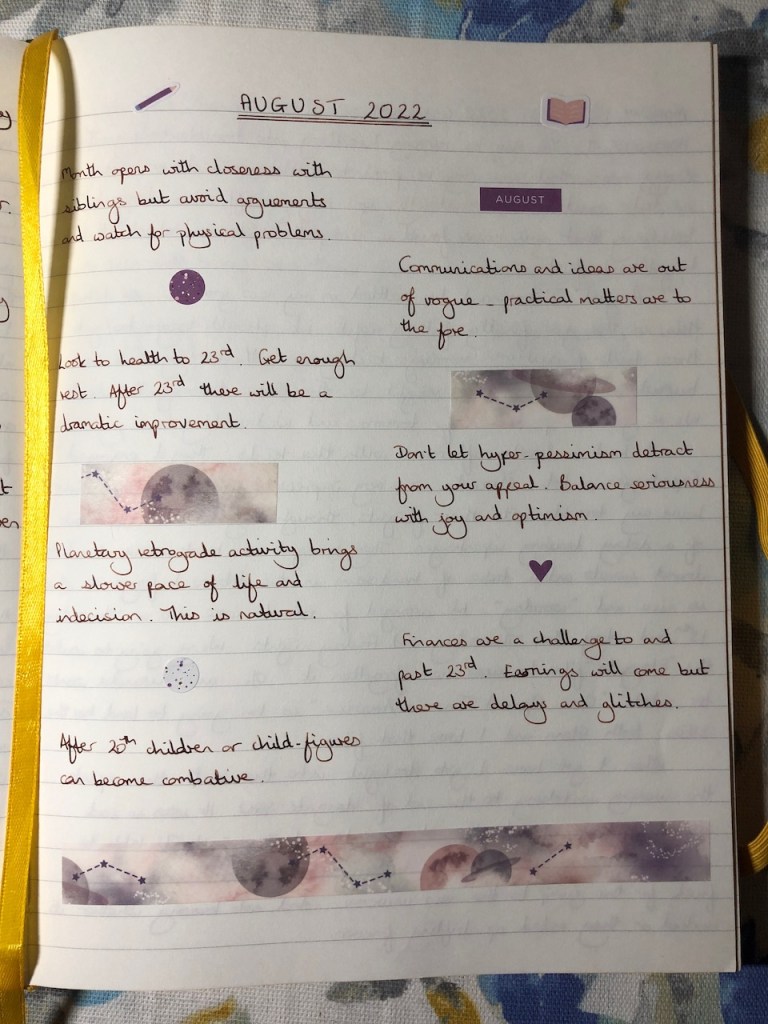 AUGUST 2022
Month opens with closeness with
siblings but avoid arguements
and watch for physical problems.
Look to health to 23rd. Get enough
rest. After 23rd there will be a
dramatic improvement.
Planetary retrograde activity brings
a slower pace of life and
indecision. This is natural.
After 20th children or child-figures
can become combative.
AUGUST
Communications and ideas are out
of vogue - practical matters are to
the fore.
Don't let hyper-pessimism detract
from your appeal. Balance seriousness
with joy and optimism.
Finances are a challenge to and
past 23rd. Earnings will come but
there are delays and glitches.